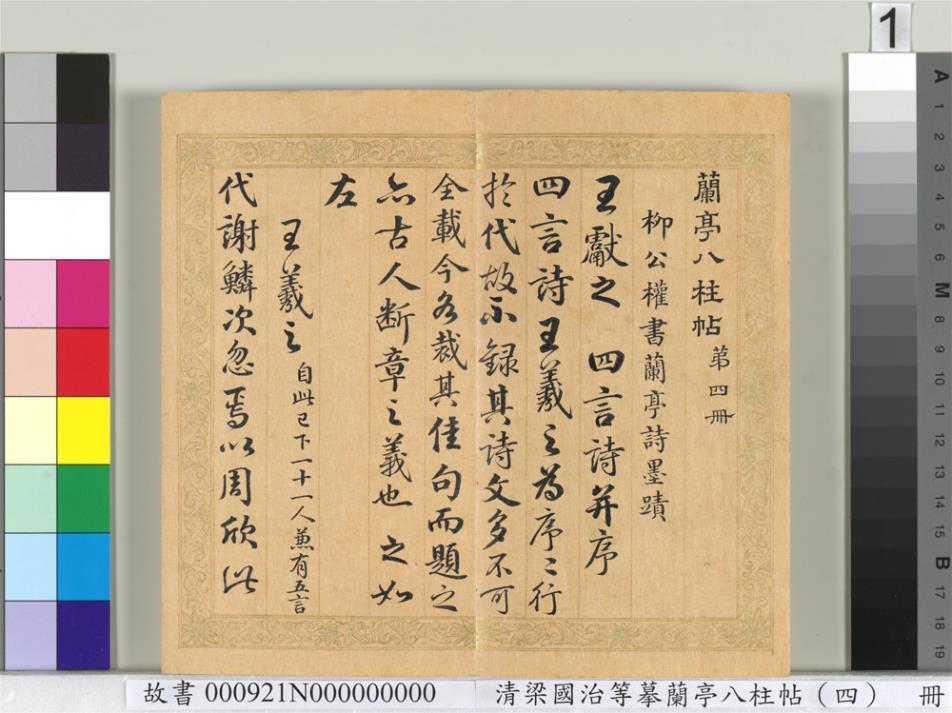 蘭亭八柱帖 第四冊
柳公權書蘭亭詩墨蹟
王獻之 四言詩并序
四言詩王羲之為序序行
於代故不錄其詩文多不可
全載今各裁其佳句而題之
亦古人斷章之義也之如
左
王羲之 自此已下一十一人兼有五言
代謝鱗次忽焉以周欣此
1
A 1 2 3 4 5 6 M 8 9 10 11 12 13 14 15 B 17 18 19
故書 000921N000000000 清梁國治等摹蘭亭八柱帖（四） 冊